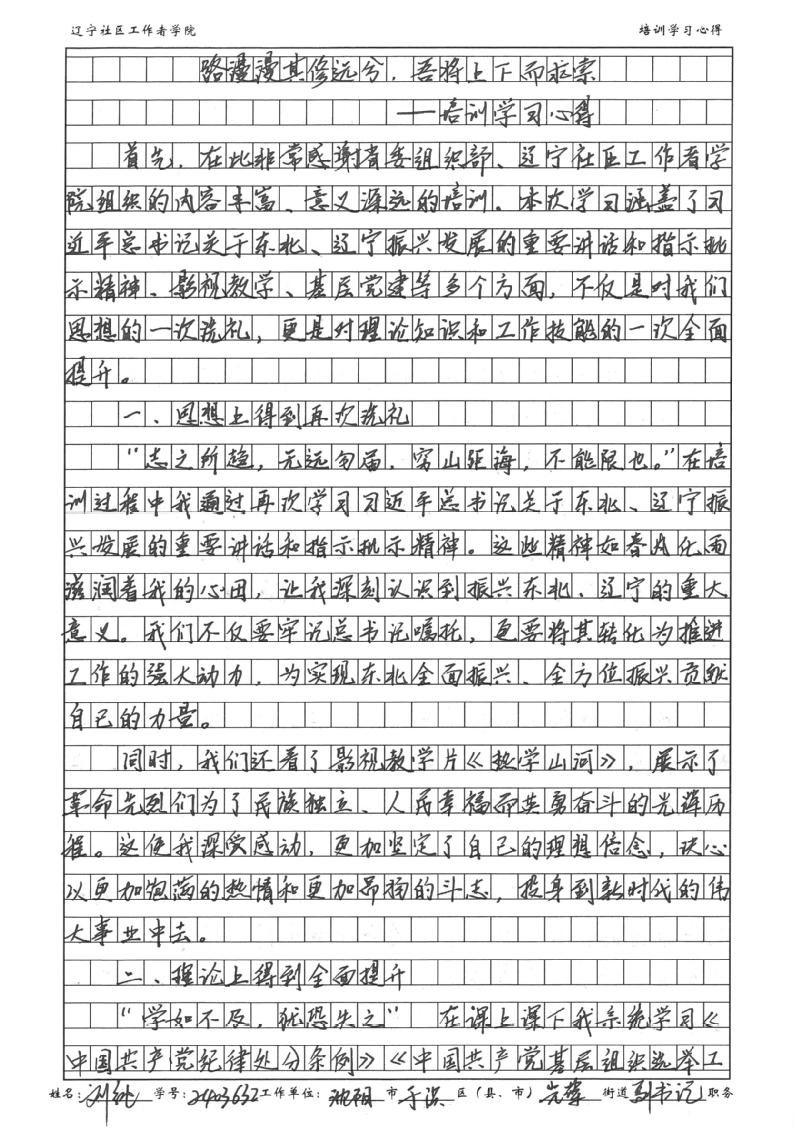 辽宁社区工作者学院 培训学习心得
路漫漫其修远兮，吾将上下而求索
——培训学习心得
首先，在此非常感谢省委组织部、辽宁社区工作者学
院组织的内容丰富、意义深远的培训。本次学习涵盖了习
近平总书记关于东北、辽宁振兴发展的重要讲话和指示批
示精神、影视教学、基层党建等多个方面，不仅是对我们
思想的一次洗礼，更是对理论知识和工作技能的一次全面
提升。
一、思想上得到再次洗礼
“志之所趋，无远勿届，穷山距海，不能限也。”在培
训过程中我通过再次学习习近平总书记关于东北、辽宁振
兴发展的重要讲话和指示批示精神。这些精神如春风化雨
滋润着我的心田，让我深刻认识到振兴东北、辽宁的重大
意义。我们不仅要牢记总书记嘱托，更要将其转化为推进
工作的强大动力，为实现东北全面振兴、全方位振兴贡献
自己的力量。
同时，我们还看了影视教学片《热学山河》，展示了
革命先烈们为了民族独立、人民幸福而英勇奋斗的光辉历
程。这使我深受感动，更加坚定了自己的理想信念，决心
以更加饱满的热情和更加昂扬的斗志，投身到新时代的伟
大事业中去。
二、理论上得到全面提升
“学如不及，犹恐失之” 在课上课下我系统学习《
中国共产党纪律处分条例》《中国共产党基层组织选举工
姓名：刘纯 学号：2403632 工作单位：沈阳 市 于洪 区（县、市） 街道 副书记 职务